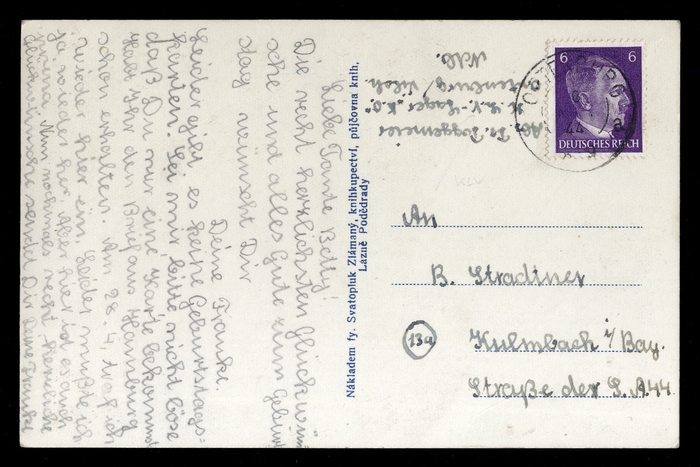 Liebe Tante Betty!
Die recht herzlichsten Glückwün-
sche und alles Gute zum Geburts-
tag wünscht Dir
Deine Frauke.
Leider gibt es keine Geburtstags-
karten. Sei mir bitte nicht böse
daß Du nur eine Karte bekommst
Habt Ihr den Brief aus Hamburg
schon erhalten. Am 28. 4. traf ich
wieder hier ein. Leider mußte ich
ja wieder her. Aber hier ist es auch
prima. Nun nochmals recht herzliche
Glückwünsche sendet Dir Deine Frauke
Nákladem fy. Svatopluk Zlámaný, knihkupectví, půjčovna knih,
Lázně Poděbrady
Abs. Fr. Poggemeier
K.L.V.-Lager „K.O."
6
6
DEUTSCHES REICH
44
a
An
B. Stradtner
13a
Kulmbach i/Bay.
Straße der S.A. 44